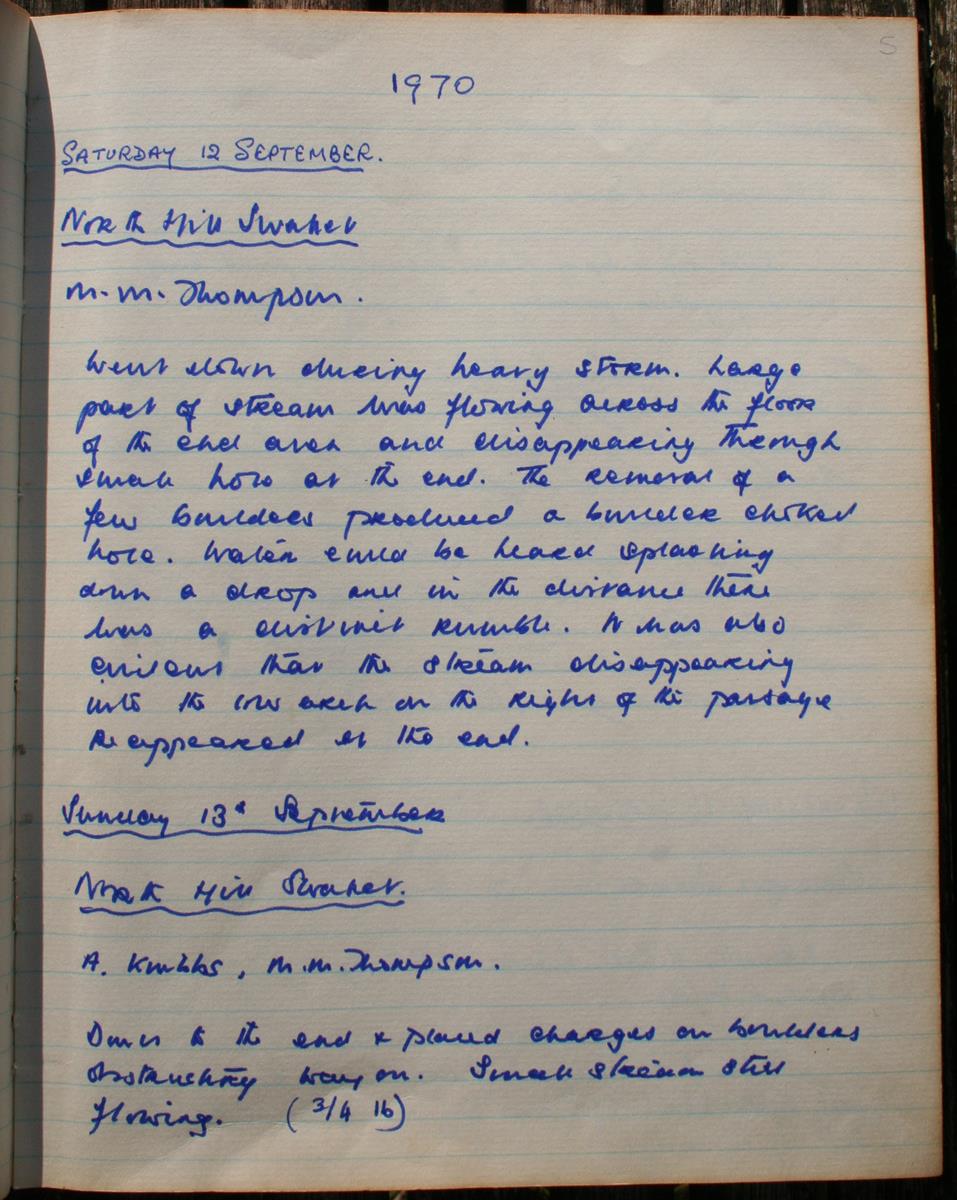 5
1970
SATURDAY 12 SEPTEMBER.
North Hill Swallet
M.M. Thompson.
Went down during heavy storm. Large
part of stream was flowing across the floor
of the end area and disappearing through
small hole at the end. The removal of a
few boulders produced a boulder choked
hole. Water could be heard splashing
down a drop and in the distance there
was a distinct rumble. It was also
evident that the stream disappearing
into the low arch on the right of the passage
reappeared at the end.
Sunday 13th September
North Hill Swallet.
A. Knibbs, M.M. Thompson.
Down to the end & placed charges on boulders
obstructing way on. Small stream still
flowing. (3/4 lb)